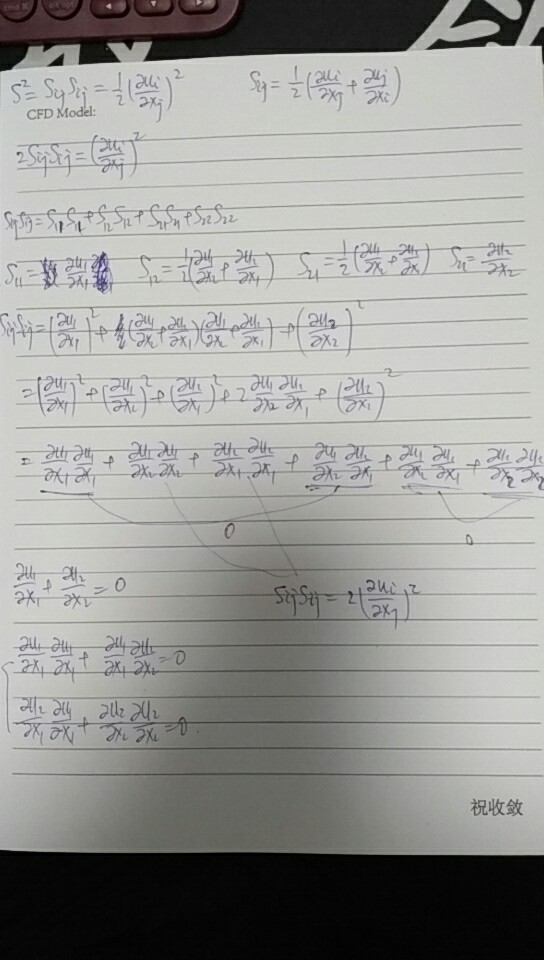 S² = SijSij = 1/2 (∂ui/∂xj)² Sij = 1/2 (∂ui/∂xj + ∂uj/∂xi)
CFD Model:
2SijSij = (∂ui/∂xj)²
SijSij = S11S11 + S12S12 + S21S21 + S22S22
S11 = ∂u1/∂x1 S12 = 1/2 (∂u1/∂x2 + ∂u2/∂x1) S21 = 1/2 (∂u1/∂x2 + ∂u1/∂x1) S22 = ∂u2/∂x2
SijSij = (∂u1/∂x1)² + (∂u1/∂x2 + ∂u2/∂x1)(∂u1/∂x2 + ∂u2/∂x1) + (∂u2/∂x2)²
= (∂u1/∂x1)² + (∂u1/∂x2)² + (∂u2/∂x1)² + 2 ∂u1/∂x2 ∂u2/∂x1 + (∂u2/∂x1)²
= ∂u1/∂x1 ∂u1/∂x1 + ∂u1/∂x2 ∂u1/∂x2 + ∂u2/∂x1 ∂u2/∂x1 + ∂u1/∂x2 ∂u2/∂x1 + ∂u1/∂x2 ∂u2/∂x1 + ∂u2/∂x2 ∂u2/∂x2
0 0
∂u1/∂x1 + ∂u2/∂x2 = 0
SijSij = 2(∂ui/∂xj)²
∂u1/∂x1 ∂u1/∂x1 + ∂u1/∂x1 ∂u2/∂x2 = 0
∂u2/∂x1 ∂u1/∂x1 + ∂u2/∂x2 ∂u2/∂x2 = 0.
祝收敛